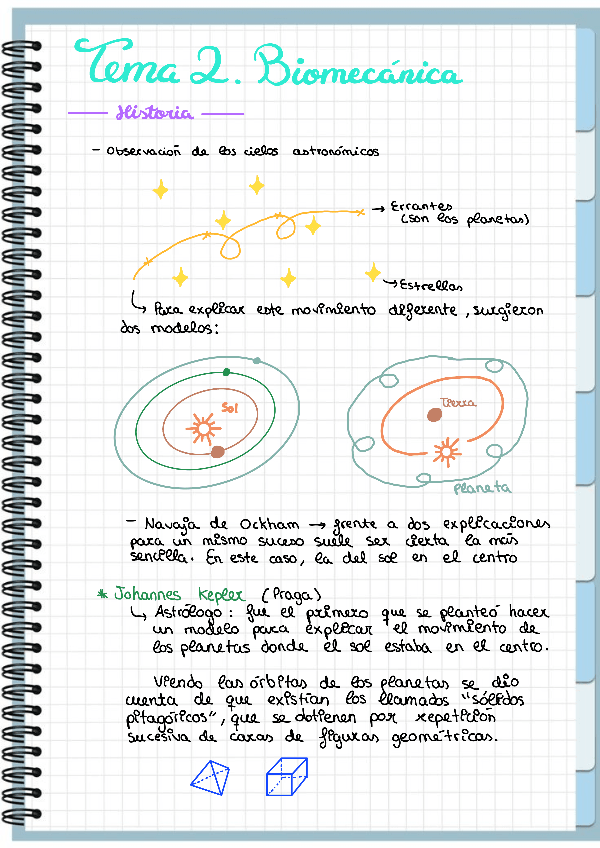 Tema 2. Biomecánica
Historia
- Observación de los cielos astronómicos
→ Errantes
(son los planetas)
→ Estrellas
↳ Para explicar este movimiento diferente, surgieron
dos modelos:
Sol
Tierra
Planeta
- Navaja de Ockham → frente a dos explicaciones
para un mismo suceso suele ser cierta la más
sencilla. En este caso, la del sol en el centro
* Johannes Kepler (Praga)
↳ Astrólogo: fue el primero que se planteó hacer
un modelo para explicar el movimiento de
los planetas donde el sol estaba en el centro.
Viendo las órbitas de los planetas se dio
cuenta de que existían los llamados "sólidos
pitagóricos", que se obtienen por repetición
sucesiva de caras de figuras geométricas.